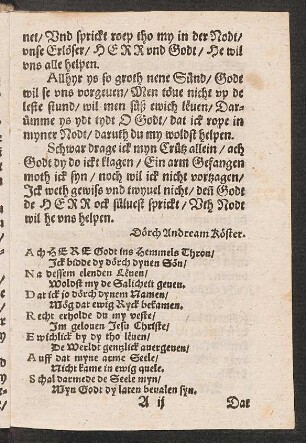 net/ Vnd sprickt roep tho my in der Nodt/
vnse Erlöser/ HERR vnd Godt/ He wil
vns alle helpen.
Allhyr ys so groth nene Sünd/ Godt
wil se vns vorgeuen/ Men töue nicht vp de
leste stund/ wil men süß ewich leuen/ Dar-
ümme ys ydt tydt O Godt/ dat ick rope in
myner Nodt/ daruth du my woldst helpen.
Schwar drage ick myn Crütz allein/ ach
Godt dy do ickt klagen/ Ein arm Gefangen
moth ick syn/ noch wil ick nicht vorzagen/
Ick weth gewiss vnd twyuel nicht/ deñ Godt
de HERR ock süluest sprickt/ Vth Nodt
wil he vns helpen.
Dörch Andream Köster.
Ach HERE Godt ins Hemmels Thron/
Ick bidde dy dörch dynen Sön/
Na dessem elenden Leuen/
Woldst my de Salicheit geuen.
Dat ick so dörch dynem Namen/
Mög dar ewig Ryck bekamen.
Recht erholde du my veste/
Im gelouen Jesu Christe/
Ewichlick by dy tho leuen/
De Werldt gentzlick auergeuen/
Auff dat myne arme Seele/
Nicht kame in ewig quele.
Schal darmede de Seele myn/
Myn Godt dy laten beualen syn.
A ij Dat